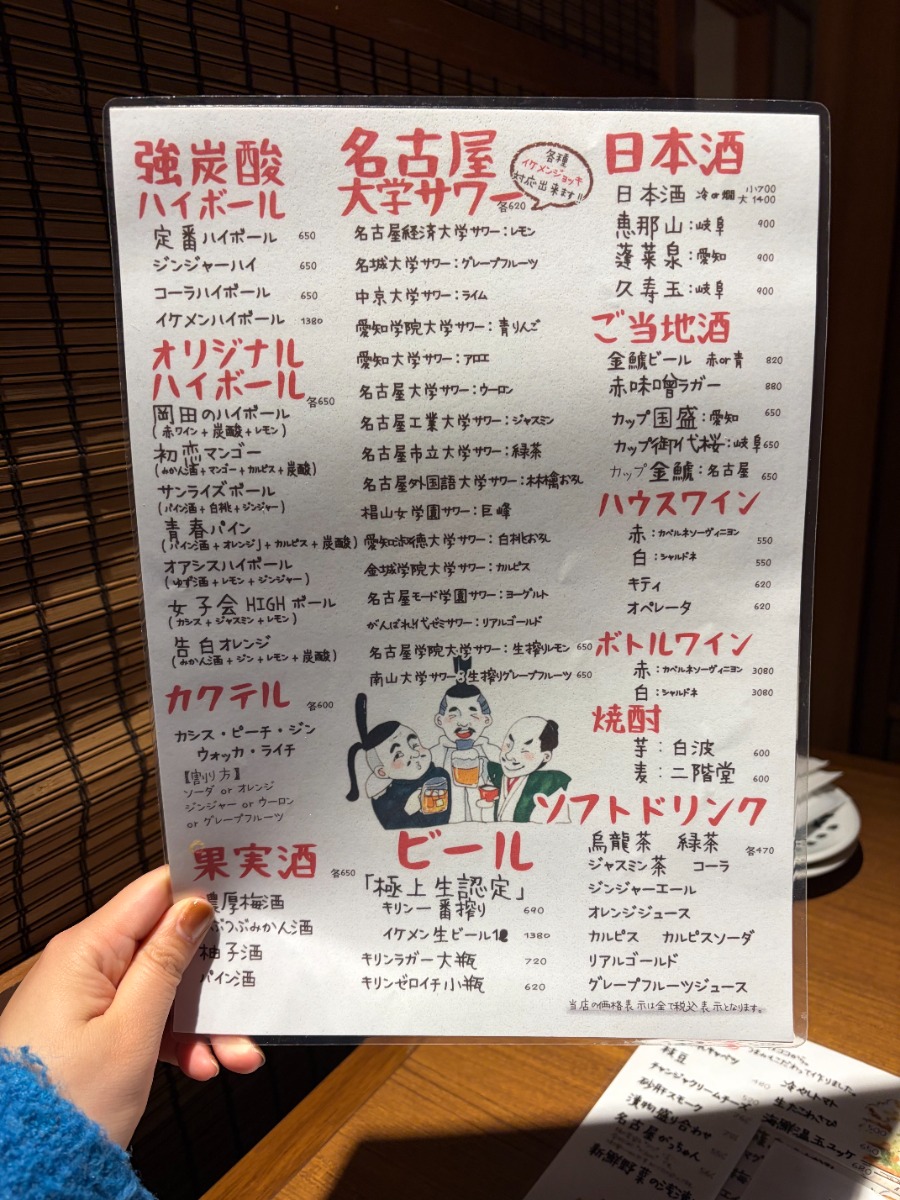 強炭酸
ハイボール
定番ハイボール 650
ジンジャーハイ 650
コーラハイボール 650
イケメンハイボール 1380
オリジナル
ハイボール 各650
岡田のハイボール
(赤ワイン+炭酸+レモン)
初恋マンゴー
(みかん酒+マンゴー+カルピス+炭酸)
サンライズボール
(パイン酒+白桃+ジンジャー)
青春パイン
(パイン酒+オレンジ+カルピス+炭酸)
オアシスハイボール
(ゆず酒+レモン+ジンジャー)
女子会HIGHボール
(カシス+ジャスミン+レモン)
告白オレンジ
(みかん酒+ジン+レモン+炭酸)
カクテル 各600
カシス・ピーチ・ジン
ウォッカ・ライチ
【割り方】
ソーダ or オレンジ
ジンジャー or ウーロン
or グレープフルーツ
果実酒 各650
濃厚梅酒
ぶつぶみかん酒
柚子酒
パイン酒
名古屋
大学サワー 各620
各種
イケメンジョッキ
対応出来ます!!
名古屋経済大学サワー:レモン
名城大学サワー:グレープフルーツ
中京大学サワー:ライム
愛知学院大学サワー:青りんご
愛知大学サワー:アロエ
名古屋大学サワー:ウーロン
名古屋工業大学サワー:ジャスミン
名古屋市立大学サワー:緑茶
名古屋外国語大学サワー:林檎おろし
椙山女学園サワー:巨峰
愛知淑徳大学サワー:白桃おろし
金城学院大学サワー:カルピス
名古屋モード学園サワー:ヨーグルト
がんばれ代ゼミサワー:リアルゴールド
名古屋学院大学サワー:生搾りレモン 650
南山大学サワー:生搾りグレープフルーツ 650
ビール
「極上生認定」
キリン一番搾り 690
イケメン生ビール1ℓ 1380
キリンラガー大瓶 720
キリンゼロイチ小瓶 620
日本酒
日本酒 冷or燗 小700
大1400
恵那山:岐阜 900
蓬莱泉:愛知 900
久寿玉:岐阜 900
ご当地酒
金鯱ビール 赤or青 820
赤味噌ラガー 880
カップ国盛:愛知 650
カップ御代桜:岐阜 650
カップ金鯱:名古屋 650
ハウスワイン
赤:カベルネソーヴィニヨン 550
白:シャルドネ 550
キティ 620
オペレータ 620
ボトルワイン
赤:カベルネソーヴィニヨン 3080
白:シャルドネ 3080
焼酎
芋:白波 600
麦:二階堂 600
ソフトドリンク
烏龍茶 緑茶 各470
ジャスミン茶 コーラ
ジンジャーエール
オレンジジュース
カルピス カルピスソーダ
リアルゴールド
グレープフルーツジュース
当店の価格表示は全て税込表示となります。
枝豆
チャンジャクリームチーズ
砂肝スモーク
漬物盛り合わせ
名古屋がっちゃん
新鮮野菜の
こだわって作りました
冷やしトマト
生たこわさび
海鮮温玉ユッケ
680